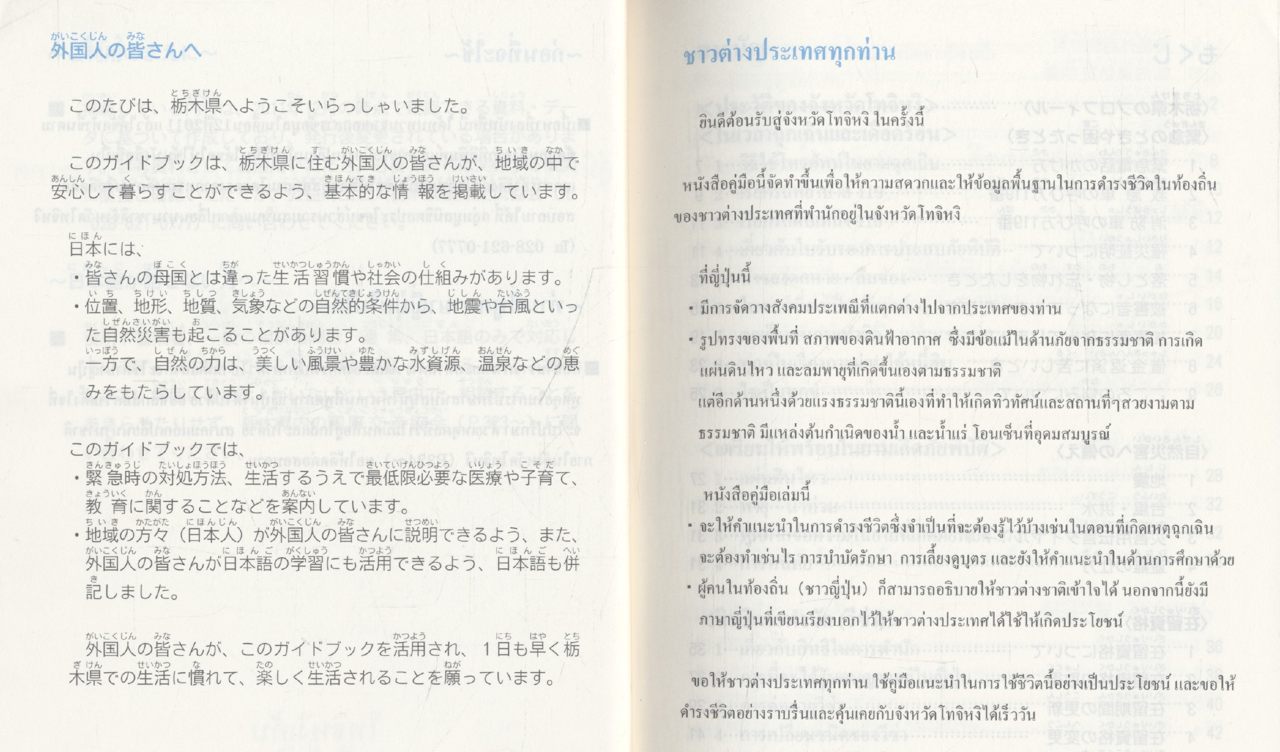 外国人の皆さんへ
このたびは、栃木県へようこそいらっしゃいました。
このガイドブックは、栃木県に住む外国人の皆さんが、地域の中で
安心して暮らすことができるよう、基本的な情報を掲載しています。
日本には、
・皆さんの母国とは違った生活習慣や社会の仕組みがあります。
・位置、地形、地質、気象などの自然的条件から、地震や台風といっ
た自然災害も起こることがあります。
一方で、自然の力は、美しい風景や豊かな水資源、温泉などの恵
みをもたらしています。
このガイドブックでは、
・緊急時の対処方法、生活するうえで最低限必要な医療や子育て、
教育に関することなどを案内しています。
・地域の方々（日本人）が外国人の皆さんに説明できるよう、また、
外国人の皆さんが日本語の学習にも活用できるよう、日本語も併
記しました。
外国人の皆さんが、このガイドブックを活用され、１日も早く栃
木県での生活に慣れて、楽しく生活されることを願っています。
ชาวต่างประเทศทุกท่าน
ยินดีต้อนรับสู่จังหวัดโทจิหงิ ในครั้งนี้
หนังสือคู่มือนี้จัดทำขึ้นเพื่อให้ความสดวกและให้ข้อมูลพื้นฐานในการดำรงชีวิตในท้องถิ่น
ของชาวต่างประเทศที่พำนักอยู่ในจังหวัดโทจิหงิ
ที่ญี่ปุ่นนี้
・มีการจัดวางสังคมประเพณีที่แตกต่างไปจากประเทศของท่าน
・รูปทรงของพื้นที่ สภาพของดินฟ้าอากาศ ซึ่งมีข้อแม้ในด้านภัยจากธรรมชาติ การเกิด
แผ่นดินไหว และลมพายุที่เกิดขึ้นเองตามธรรมชาติ
แต่อีกด้านหนึ่งด้วยแรงธรรมชาตินี้เองที่ทำให้เกิดทิวทัศน์และสถานที่ๆสวยงามตาม
ธรรมชาติ มีแหล่งต้นกำเนิดของน้ำ และน้ำแร่ โอนเซ็นที่อุดมสมบูรณ์
หนังสือคู่มือเล่มนี้
・จะให้คำแนะนำในการดำรงชีวิตซึ่งจำเป็นที่จะต้องรู้ไว้บ้างเช่นในตอนที่เกิดเหตุฉุกเฉิน
จะต้องทำเช่นไร การบำบัดรักษา การเลี้ยงดูบุตร และยังให้คำแนะนำในด้านการศึกษาด้วย
・ผู้คนในท้องถิ่น (ชาวญี่ปุ่น) ก็สามารถอธิบายให้ชาวต่างชาติเข้าใจได้ นอกจากนี้ยังมี
ภาษาญี่ปุ่นที่เขียนเรียงบอกไว้ให้ชาวต่างประเทศได้ใช้ให้เกิดประโยชน์
ขอให้ชาวต่างประเทศทุกท่าน ใช้คู่มือแนะนำในการใช้ชีวิตนี้อย่างเป็นประโยชน์ และขอให้
ดำรงชีวิตอย่างราบรื่นและคุ้นเคยกับจังหวัดโทจิหงิได้เร็ววัน